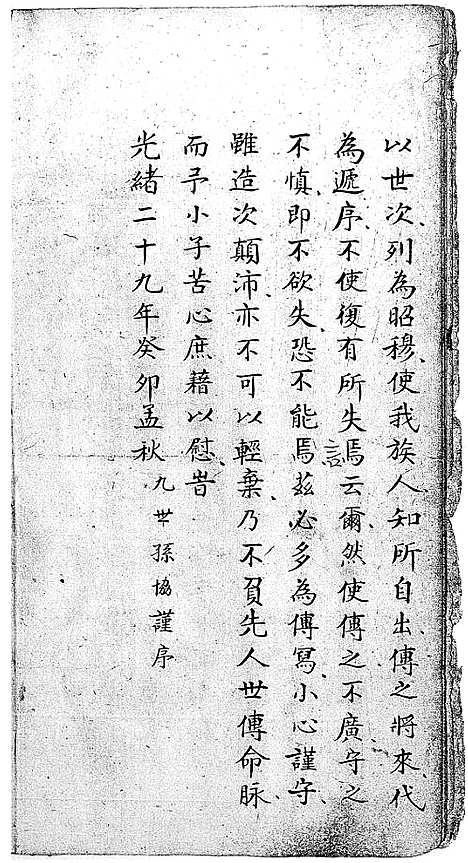 以世次列為昭穆使我族人知所自出傳之將來代
為遞序不使復有所失焉云爾然使傳之不廣守之
不慎即不欲失恐不能焉茲必多為傳寫小心謹守
雖造次顛沛亦不可以輕棄乃不負先人世傳命脉
而予小子苦心庶藉以慰
光緒二十九年癸卯孟秋 九世孫協謹序